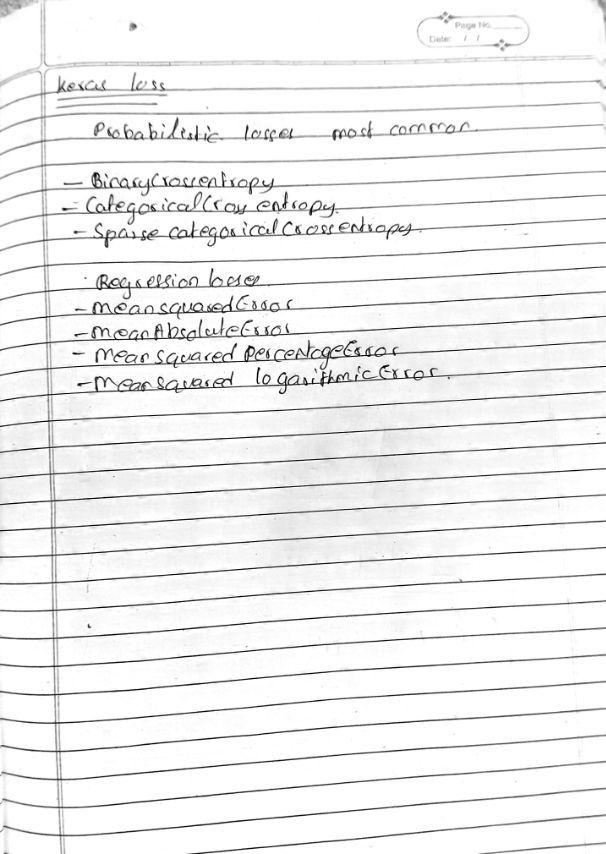 Page No.
Date: / /
Keras loss
Probabilistic losses most common.
- BinaryCrossentropy
- CategoricalCross entropy.
- Sparse categorical Crossentropy.
Regression loses
- MeansquaredError
- MeanAbsoluteError
- Mean squared PercentageError
- Mean Squared logarithmic Error.